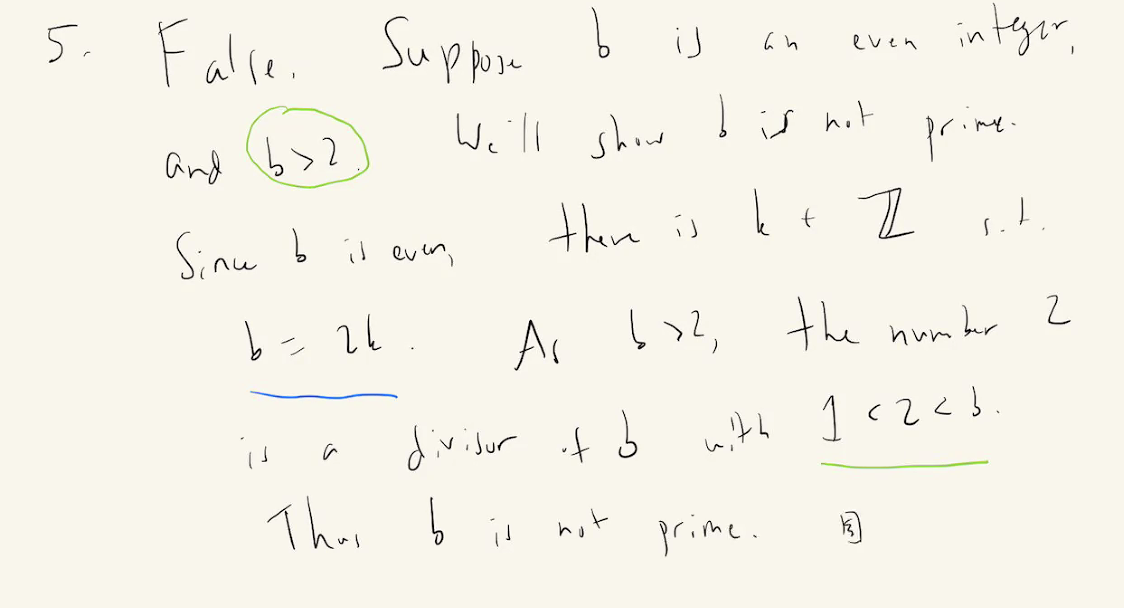 5. False. Suppose b is an even integer,
and b > 2. We'll show b is not prime.
Since b is even, there is k ∈ ℤ s.t.
b = 2k. As b > 2, the number 2
is a divisor of b with 1 < 2 < b.
Thus b is not prime.